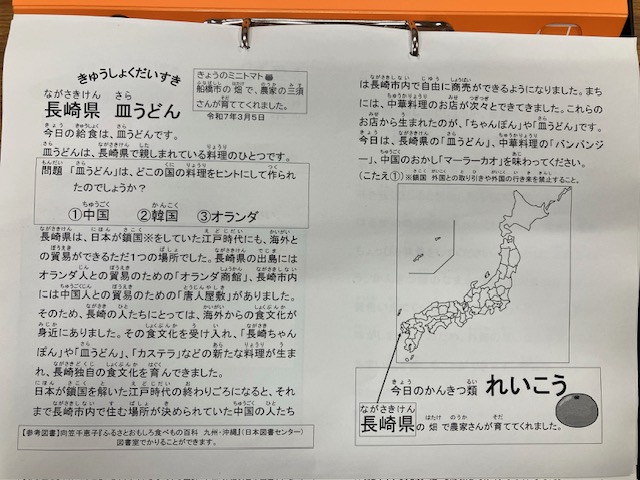 きゅうしょくだいすき
長崎県 皿うどん
きょうのミニトマト
船橋市の畑で、農家の三須
さんが育ててくれました。
令和7年3月5日
今日の給食は、皿うどんです。
皿うどんは、長崎県で親しまれている料理のひとつです。
問題 「皿うどん」は、どこの国の料理をヒントにして作られ
たのでしょうか?
①中国 ②韓国 ③オランダ
長崎県は、日本が鎖国※をしていた江戸時代にも、海外と
の貿易ができるただ1つの場所でした。長崎県の出島には
オランダ人との貿易のための「オランダ商館」、長崎市内
には中国人との貿易のための「唐人屋敷」がありました。
そのため、長崎の人たちにとっては、海外からの食文化が
身近にありました。その食文化を受け入れ、「長崎ちゃん
ぽん」や「皿うどん」、「カステラ」などの新たな料理が生ま
れ、長崎独自の食文化を育んできました。
日本が鎖国を解いた江戸時代の終わりごろになると、それ
まで長崎市内で住む場所が決められていた中国の人たち
【参考図書】向笠千恵子『ふるさとおもしろ食べもの百科 九州・沖縄』(日本図書センター)
図書室でかりることができます。
は長崎市内で自由に商売ができるようになりました。まち
には、中華料理のお店が次々とできてきました。これらの
お店から生まれたのが、「ちゃんぽん」や「皿うどん」です。
今日は、長崎県の「皿うどん」、中華料理の「バンバンジ
ー」、中国のおかし「マーラーカオ」を味わってください。
(こたえ①) ※鎖国 外国との取り引きや外国の行き来を禁止すること。
今日のかんきつ類 れいこう
長崎県の畑で農家さんが育ててくれました。